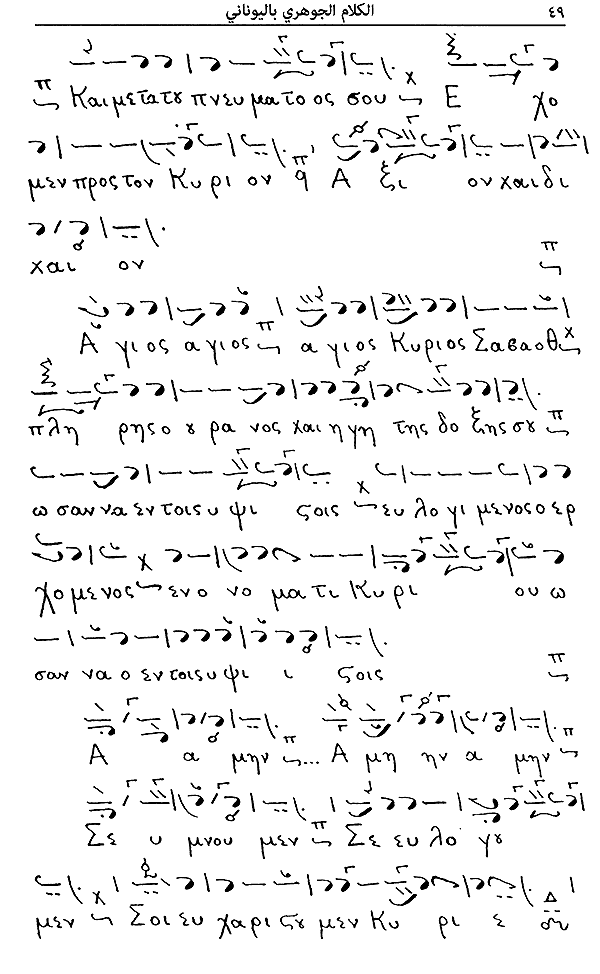 ٤٩ الكلام الجوهري باليوناني
Και μετα του πνευματο ος σου Ε χο
μεν προς τον Κυρι ον Α ξι ον χαι δι
χαι ον
Α γιος αγιος α γιος Κυριος Σαβαοθ
πλη ρης ο υ ρα νος χαι η γη της δο ξης σου
ω σαν να εν τοις υ ψι ζοις ευ λο γι μενος ο ερ
χο μενος εν ο νο μα τι Κυρι ου ω
σαν να ο εν τοις υ ψι ι ζοις
Α α μην ... Α μη ην α μην
Σε υ μνου μεν Σε ευ λο γου
μεν Σοι ευ χαρις του μεν Κυ ρι ε